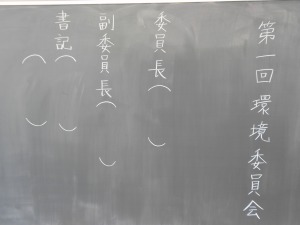 第一回環境委員会
委員長（　）
副委員長（　）
書記（　）
（　）